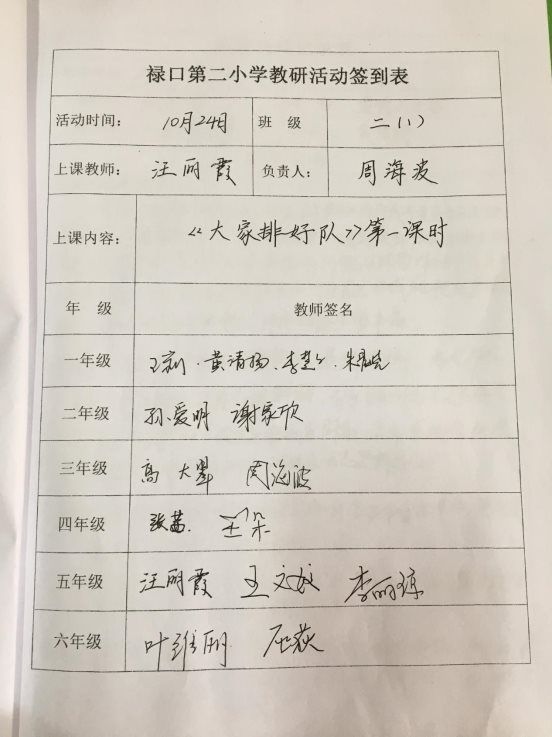 禄口第二小学教研活动签到表
活动时间： 10月24日 班 级 二（1）
上课教师： 汪丽霞 负责人： 周海波
上课内容： 《大家排好队》第一课时
年 级 教师签名
一年级 黄清扬
二年级 孙爱明 谢家欣
三年级 高大军 周海波
四年级 张茜 王朵
五年级 汪丽霞 王文姣 李丽琼
六年级 叶维丽